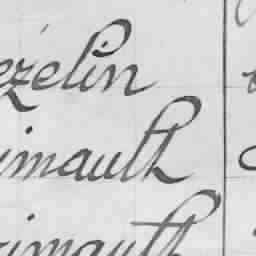 ézelin
imault
imault